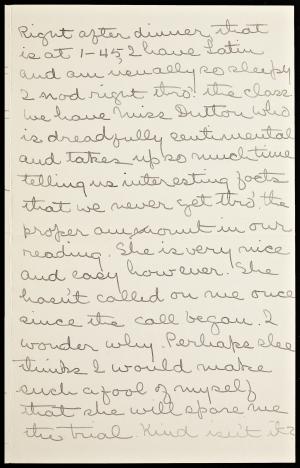 Right after dinner, that
is at 1-45, I have Latin
and am usually so sleepy
I nod right thro' the class
We have Miss Dutton who
is dreadfully sentimental
and takes up so much time
telling us interesting facts
that we never get thro' the
proper amount in our
reading. She is very nice
and easy however. She
hasn't called on me once
since the call began. I
wonder why. Perhaps she
thinks I would make
such a fool of myself
that she will spare me
the trial. Kind isn't it?